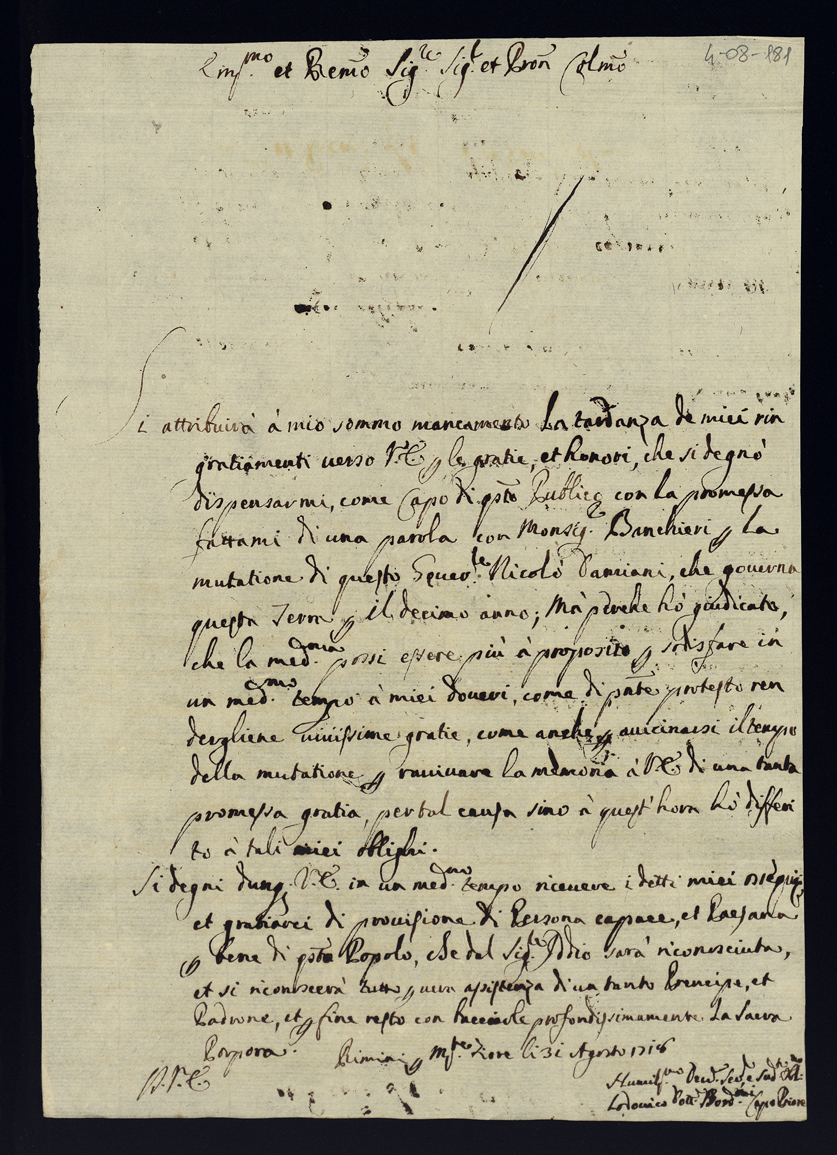 4-08-181
Em.mo et Rẽmo Sig.re Sig.r et Prõn Colmõ
Si attribuirà à mio sommo mancamento la tardanza de miei rin
gratiamenti verso V.E. ꝑ le gratie, et honori, che si degnò
dispensarmi, come Capo di qsto Publico con la promessa
fattami di una parola con Monsig.r Banchieri ꝑ la
mutatione di questo Nicolò Damiani, che governa
questa Terra ꝑ il decimo anno; Mà perche hò giudicato,
che la med.ma possi essere più à proposito ꝑ sodisfare in
un med.mo tempo à miei doveri, come di pñte protesto ren
dergliene vivissime gratie, come anche ꝑ avicinarsi il tempo
della mutatione ꝑ ravivare la memoria à V.E. di una tanta
promessa gratia, per tal causa sino à quest'hora hò differi
to à tali miei oblighi.
Si degni dunq. V.E. in un med.mo tempo ricevere i detti miei ossèquij
et gratiarci di provisione di Persona capace, et Paesana
ꝑ bene di qsto Popolo, che dal Sig.re Iddio sarà riconosciuta,
et si riconoscerà tutto ꝑ vera assistenza di un tanto Prencipe, et
Padrone, et ꝑ fine resto con bacciarle profondissimamente la Sacra
Porpora. Rimini ꝑ M.te Fiore li 31 Agosto 1718
D.V.E.
Humiliss.mo Dev.
Lodovico Capo Priore